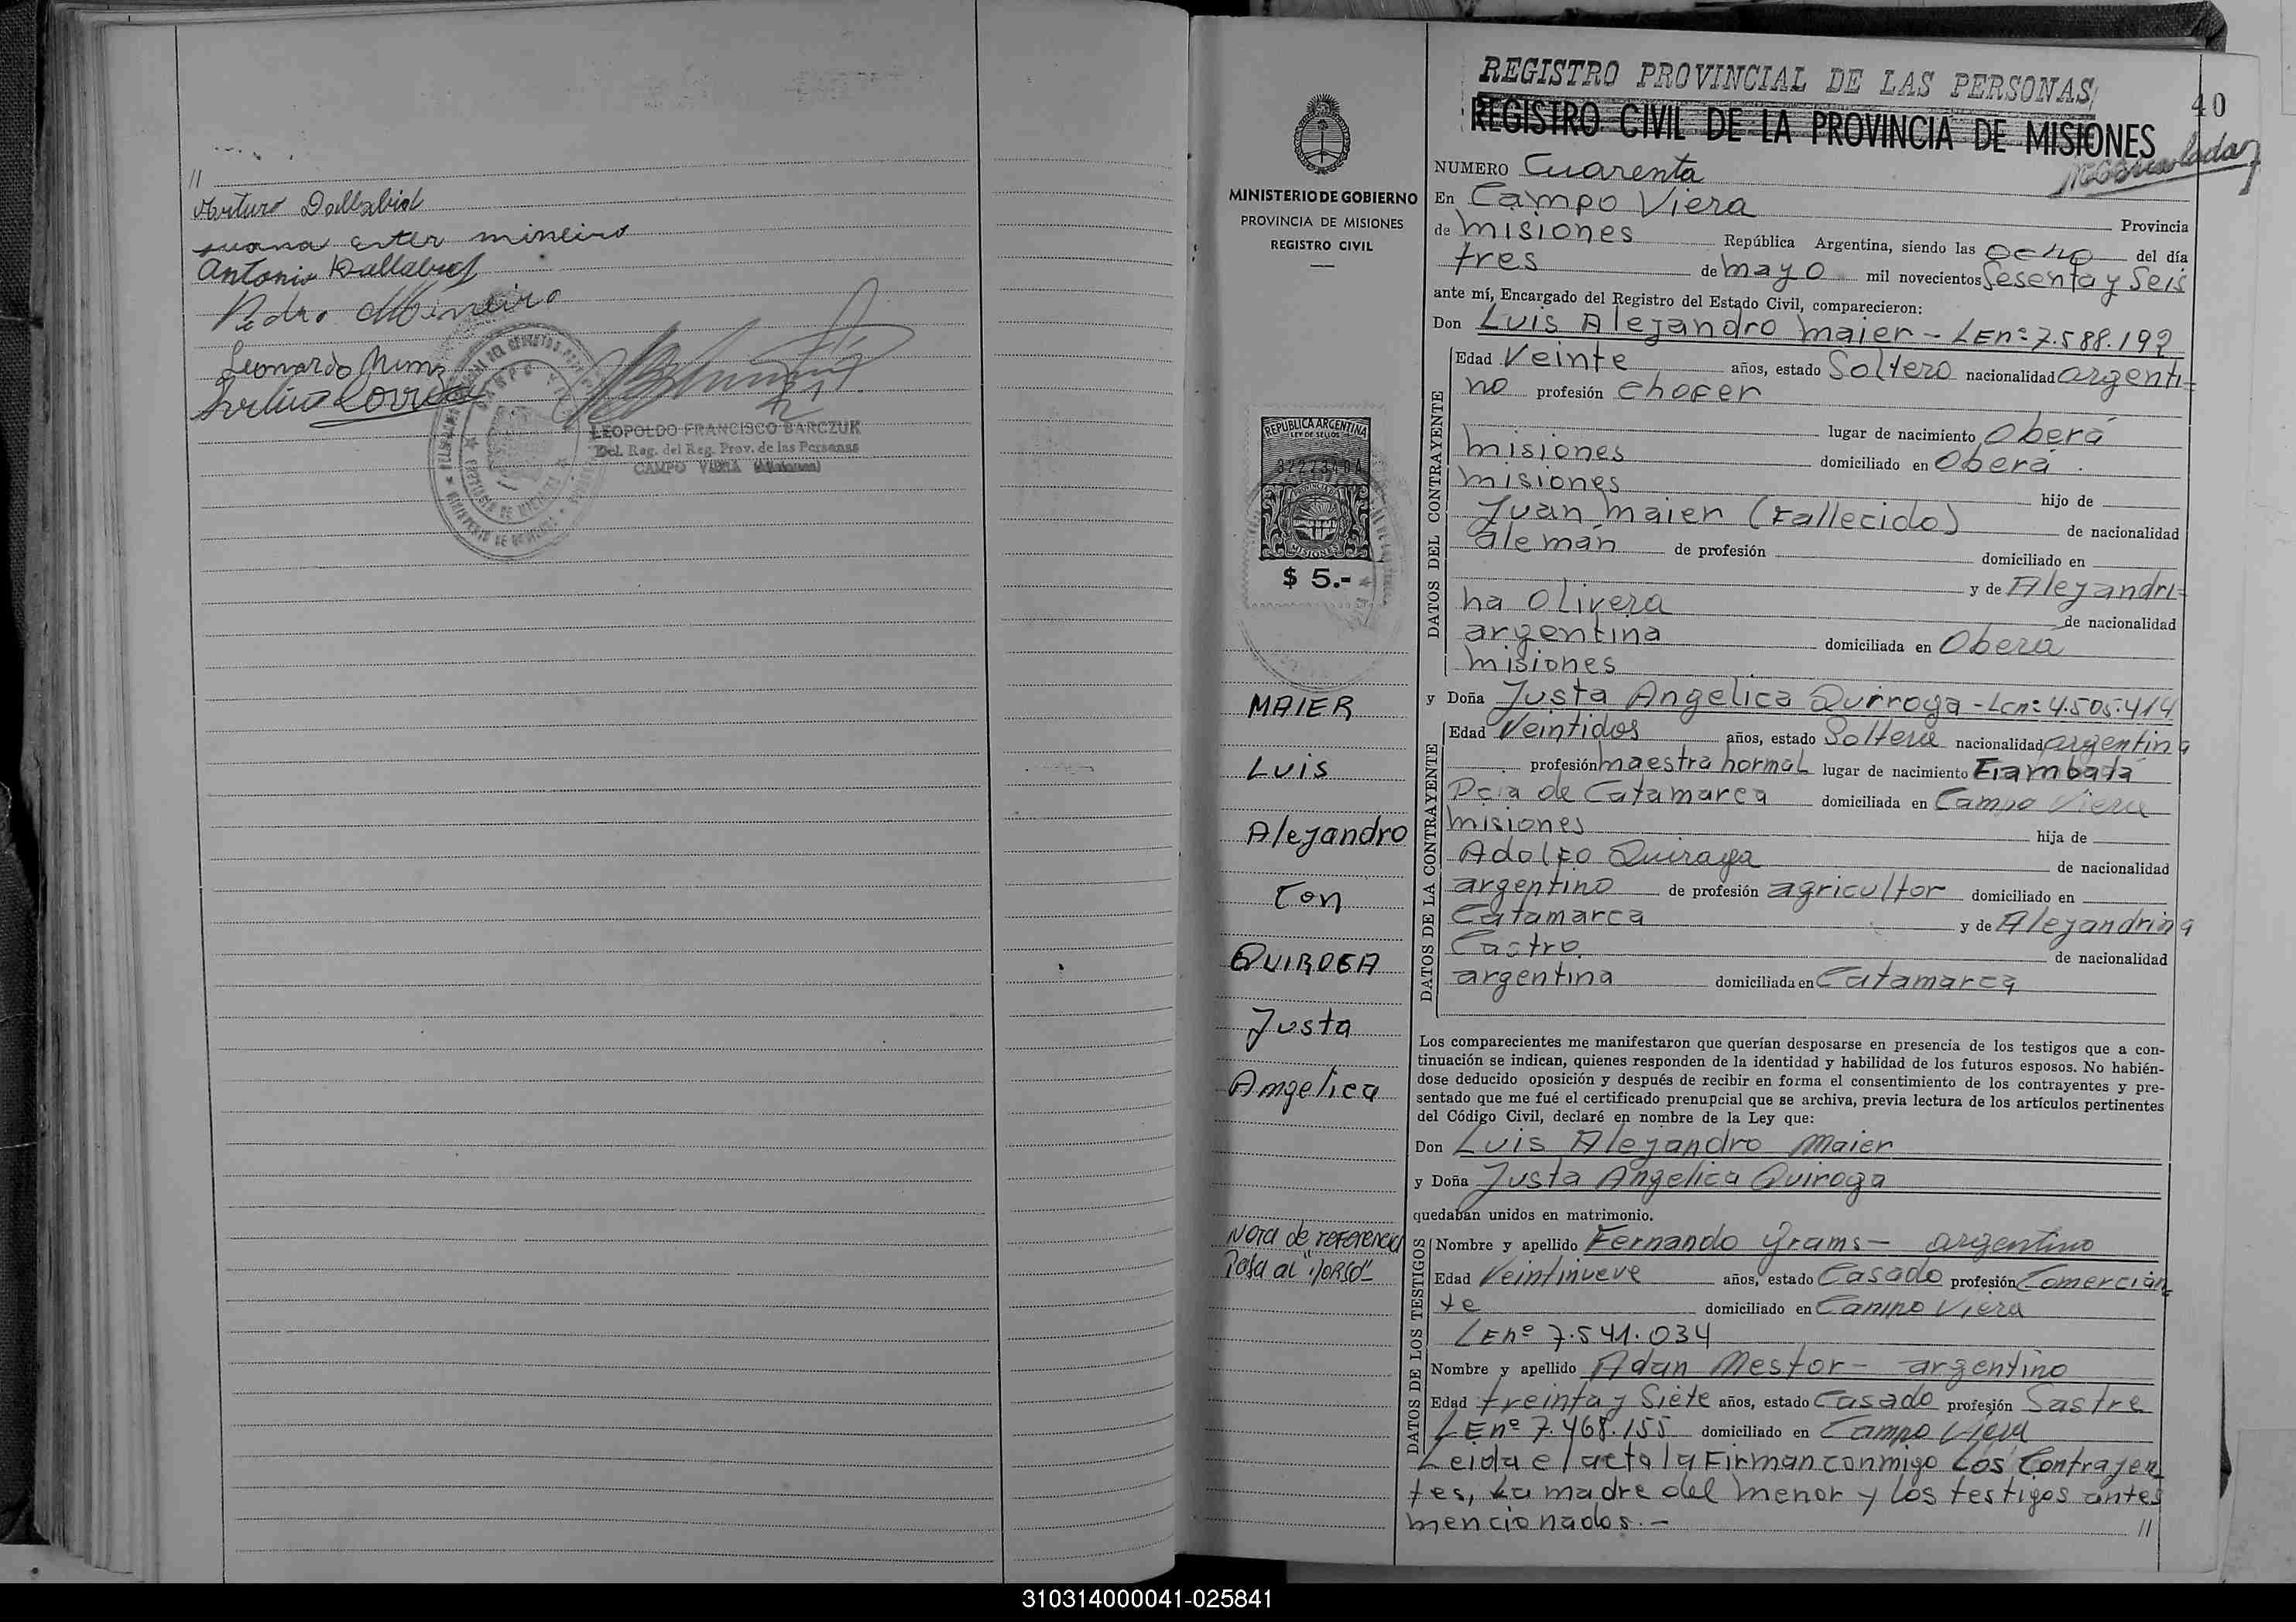 //
Arturo Dallabrid
Juana ester mineiro
Antonio Dallabrid
Pedro Mineiro
Leonardo Nunz
LEOPOLDO FRANCISCO BARCZUK
Del. Reg. del Reg. Prov. de las Personas
CAMPO VIERA (Misiones)
MINISTERIO DE GOBIERNO
PROVINCIA DE MISIONES
REGISTRO CIVIL
REPUBLICA ARGENTINA
LEY DE SELLOS
MISIONES
$ 5.-
MAIER
Luis
Alejandro
Con
QUIROGA
Justa
Angelica
Nota de referencia
Pasa al "dorso"
REGISTRO PROVINCIAL DE LAS PERSONAS
REGISTRO CIVIL DE LA PROVINCIA DE MISIONES
40
NUMERO Cuarenta
En Campo Viera Provincia
de misiones República Argentina, siendo las ocho del día
tres de mayo mil novecientos Sesenta y Seis
ante mí, Encargado del Registro del Estado Civil, comparecieron:
Don Luis Alejandro maier - LEn: 7.588.192
DATOS DEL CONTRAYENTE
Edad Veinte años, estado Soltero nacionalidad argenti=
no profesión choFer
lugar de nacimiento Oberá
misiones domiciliado en Oberá.
misiones hijo de
Juan maier (Fallecido) de nacionalidad
alemán de profesión domiciliado en
y de Alejandri=
na Olivera de nacionalidad
argentina domiciliada en Oberá
misiones
y Doña Justa Angelica Quiroga - Lcn: 4.505.414
DATOS DE LA CONTRAYENTE
Edad Veintidos años, estado Soltera nacionalidad argentina
profesión maestra normal lugar de nacimiento Fiambalá
Pcia de Catamarca domiciliada en Campo Viera
misiones hija de
AdolFo Quiroga de nacionalidad
argentino de profesión agricultor domiciliado en
Catamarca y de Alejandrina
Castro. de nacionalidad
argentina domiciliada en Catamarca
Los comparecientes me manifestaron que querían desposarse en presencia de los testigos que a con-
tinuación se indican, quienes responden de la identidad y habilidad de los futuros esposos. No habién-
dose deducido oposición y después de recibir en forma el consentimiento de los contrayentes y pre-
sentado que me fué el certificado prenupcial que se archiva, previa lectura de los artículos pertinentes
del Código Civil, declaré en nombre de la Ley que:
Don Luis Alejandro Maier
y Doña Justa Angelica Quiroga
quedaban unidos en matrimonio.
DATOS DE LOS TESTIGOS
Nombre y apellido Fernando Grams - argentino
Edad Veintinueve años, estado Casado profesión Comercian
te domiciliado en Campo Viera
LEnº 7.541.034
Nombre y apellido Adan Mestor - argentino
Edad treinta y Siete años, estado Casado profesión Sastre
LEnº 7.468.155 domiciliado en Campo Viera
Leida el acta la Firman conmigo Los Contrayen
tes, La madre del menor y Los testigos antes
mencionados. - //
310314000041-025841